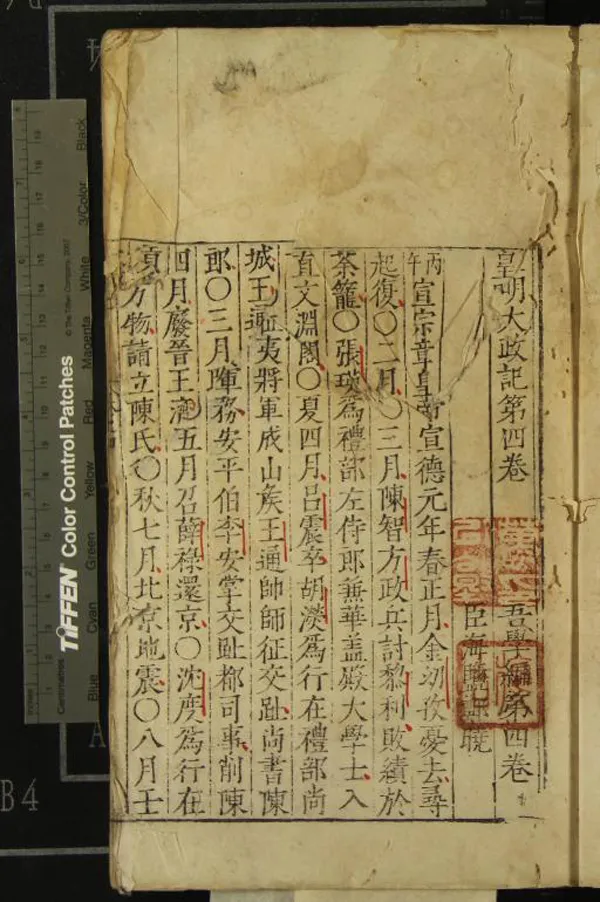 皇明大政記第四卷 吾學編第四卷
臣海鹽鄭曉
丙午宣宗章皇帝宣德元年春正月金幼孜憂去尋
起復〇二月〇三月陳智方政兵討黎利敗績於
茶籠〇張瑛爲禮部左侍郎兼華蓋殿大學士入
直文淵閣〇夏四月呂震卒胡濙爲行在禮部尚
城王通征夷將軍成山矦王通帥師征交趾尚書陳
郎〇三月陳務安平伯李安掌交趾都司事削陳
四月廢晉王濟五月召薛祿還京〇沈度爲行在
貢方物請立陳氏〇秋七月北京地震〇八月壬
Centimetres
TIFFEN Color Control Patches
© The Tiffen Company, 2007
Blue
Cyan
Green
Yellow
Red
Magenta
White
3/Color
Black
B4
A